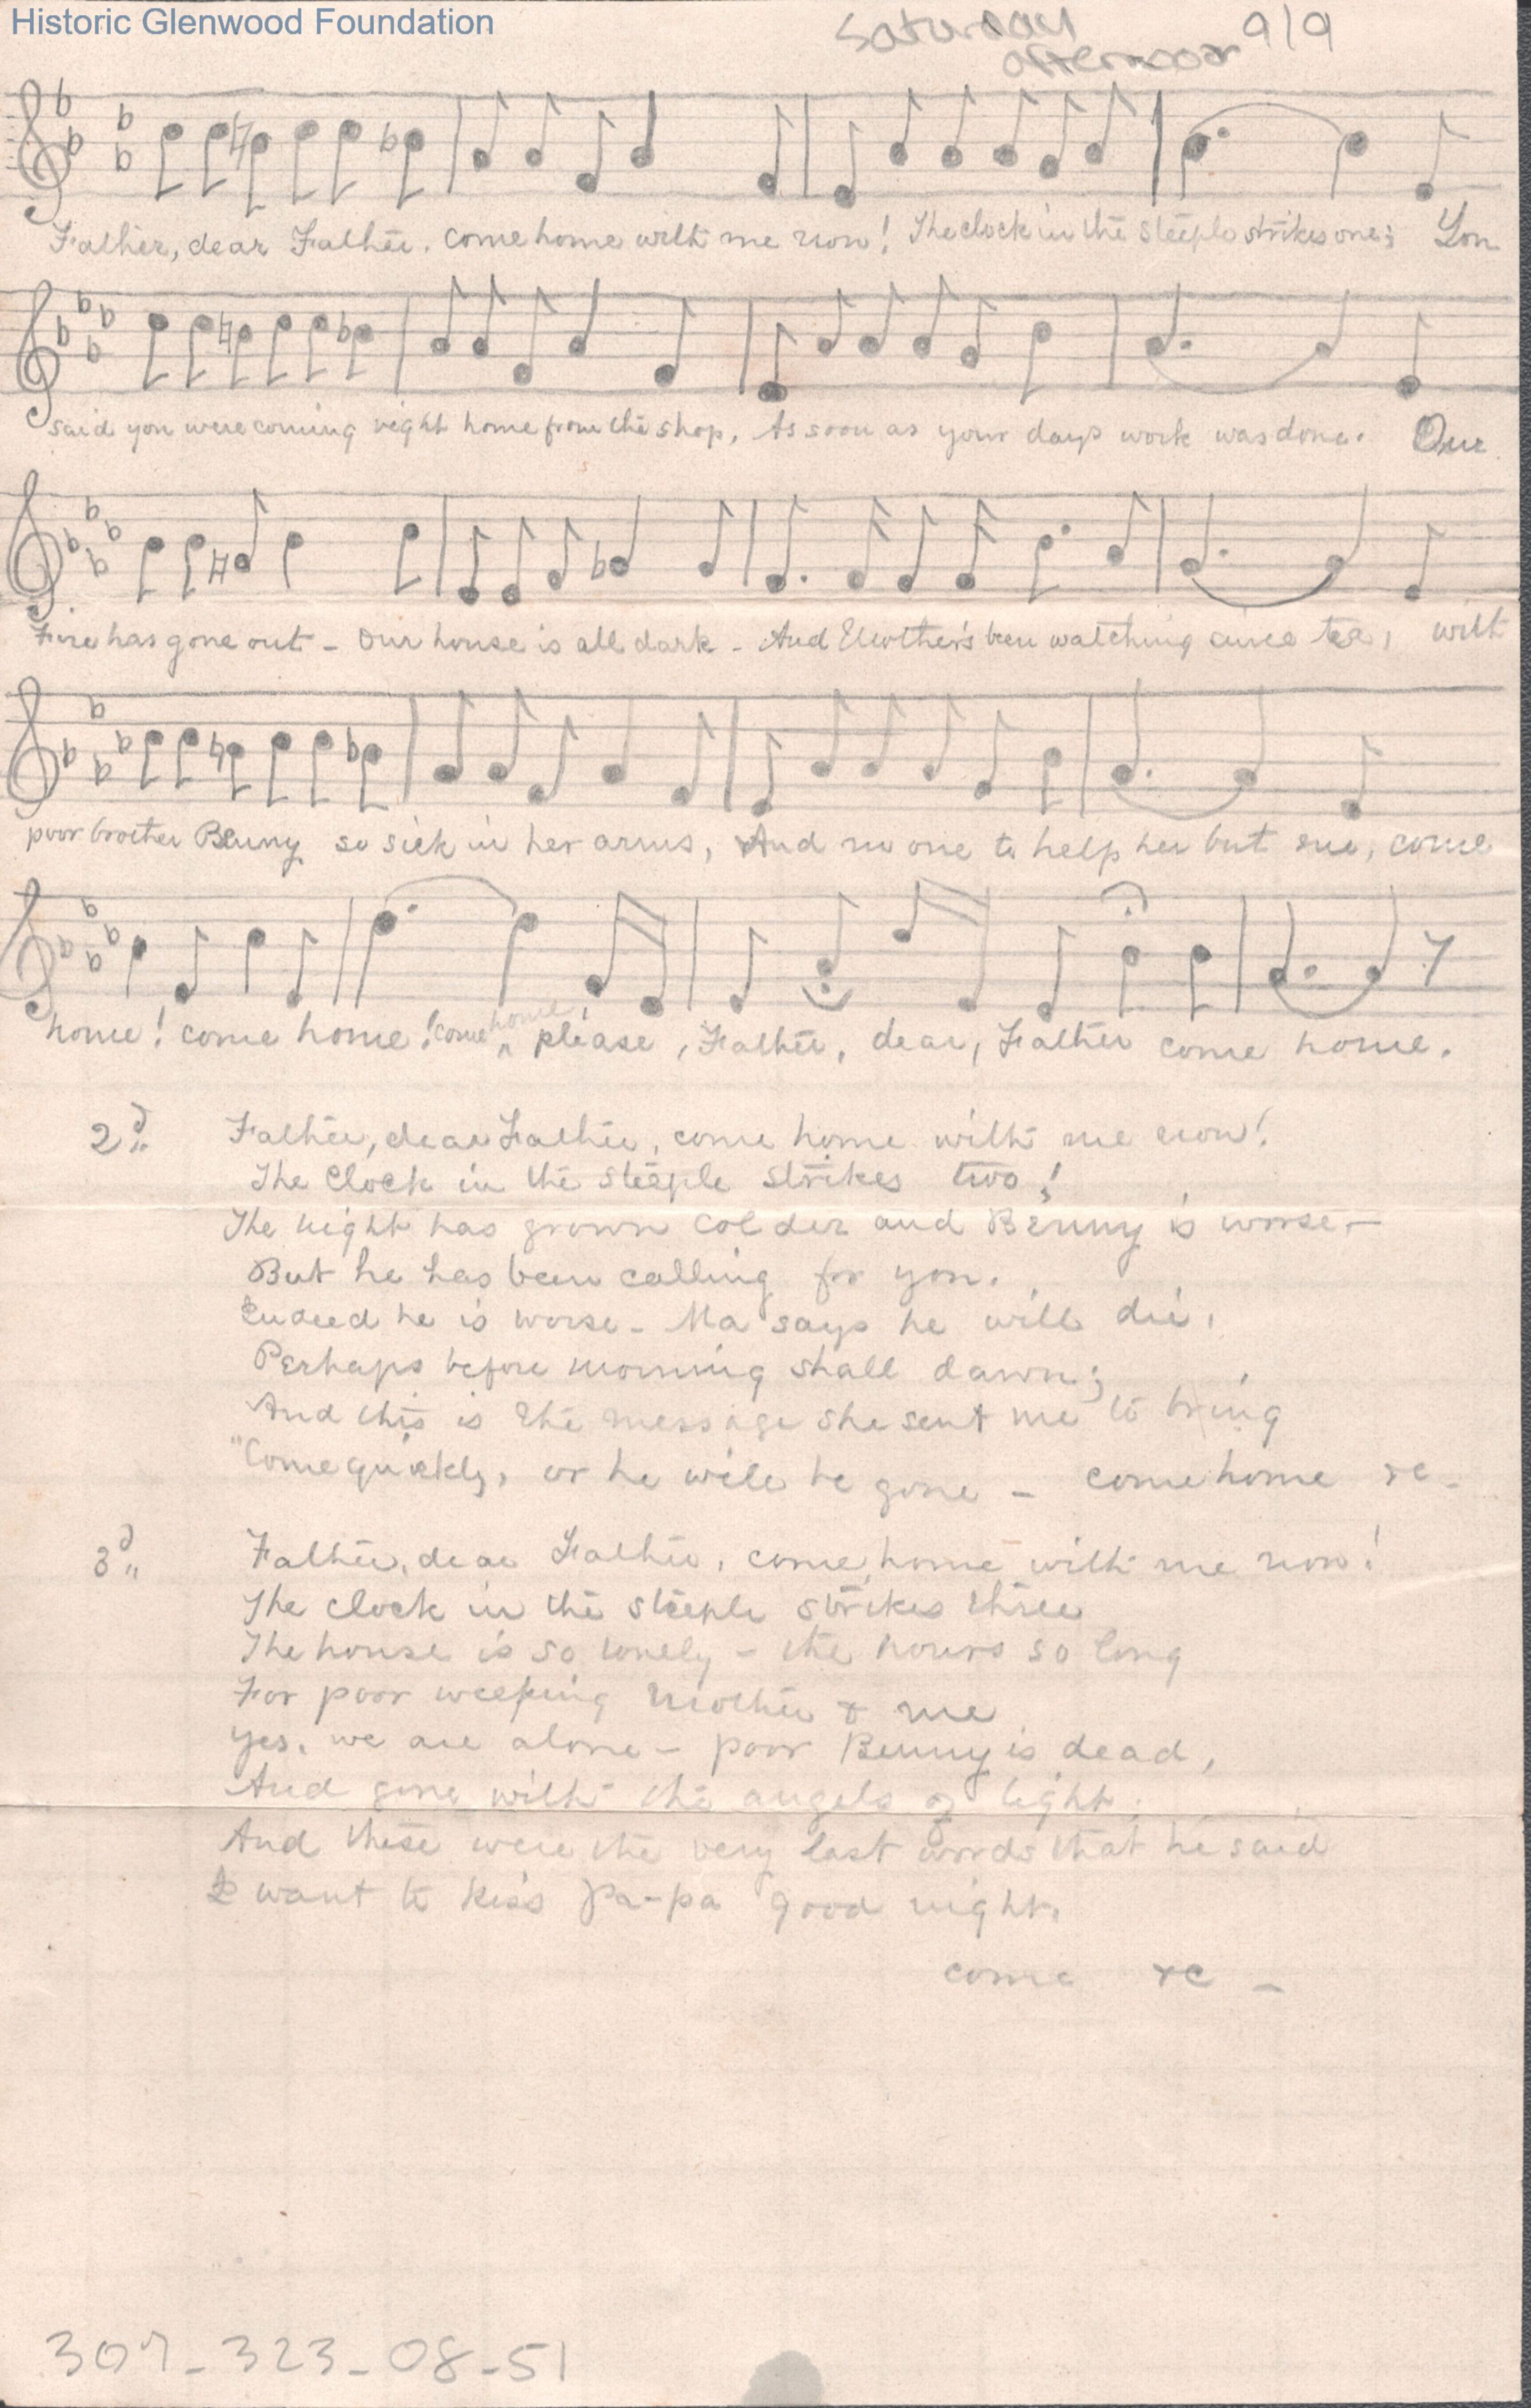 Historic Glenwood Foundation
Saturday 9/9
afternoon
Father, dear Father. come home with me now! The clock in the steeple strikes one; You
said you were coming right home from the shop, As soon as your days work was done. Our
Fire has gone out - Our house is all dark - And Mother's been watching since tea, with
poor brother Benny so sick in her arms, And no one to help her but me, come
home! come home! come home, please, Father, dear, Father come home.
2d Father, dear Father, come home with me now!
The Clock in the steeple strikes two!
The night has grown colder and Benny is worse -
But he has been calling for you.
Indeed he is worse - Ma says he will die,
Perhaps before morning shall dawn;
And this is the message she sent me to bring
"Come quickly, or he will be gone - come home &c -
3d Father, dear Father, come home with me now!
The clock in the steeple strikes three
The house is so lonely - the hours so long
For poor weeping Mother & me
Yes, we are alone - poor Benny is dead,
And gone with the angels of light.
And these were the very last words that he said
I want to kiss Pa-pa good night.
come &c -
307-323-08-51